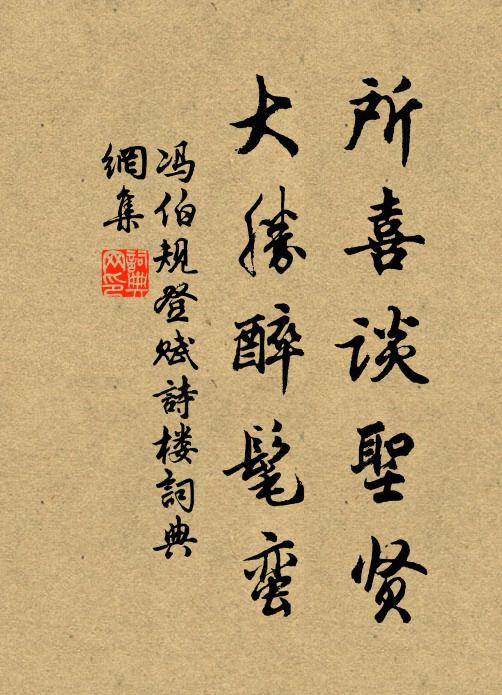 所喜谈聖贤
大勝醉髦蛮
冯伯规登赋詩楼詞典
網集
詞典
网印